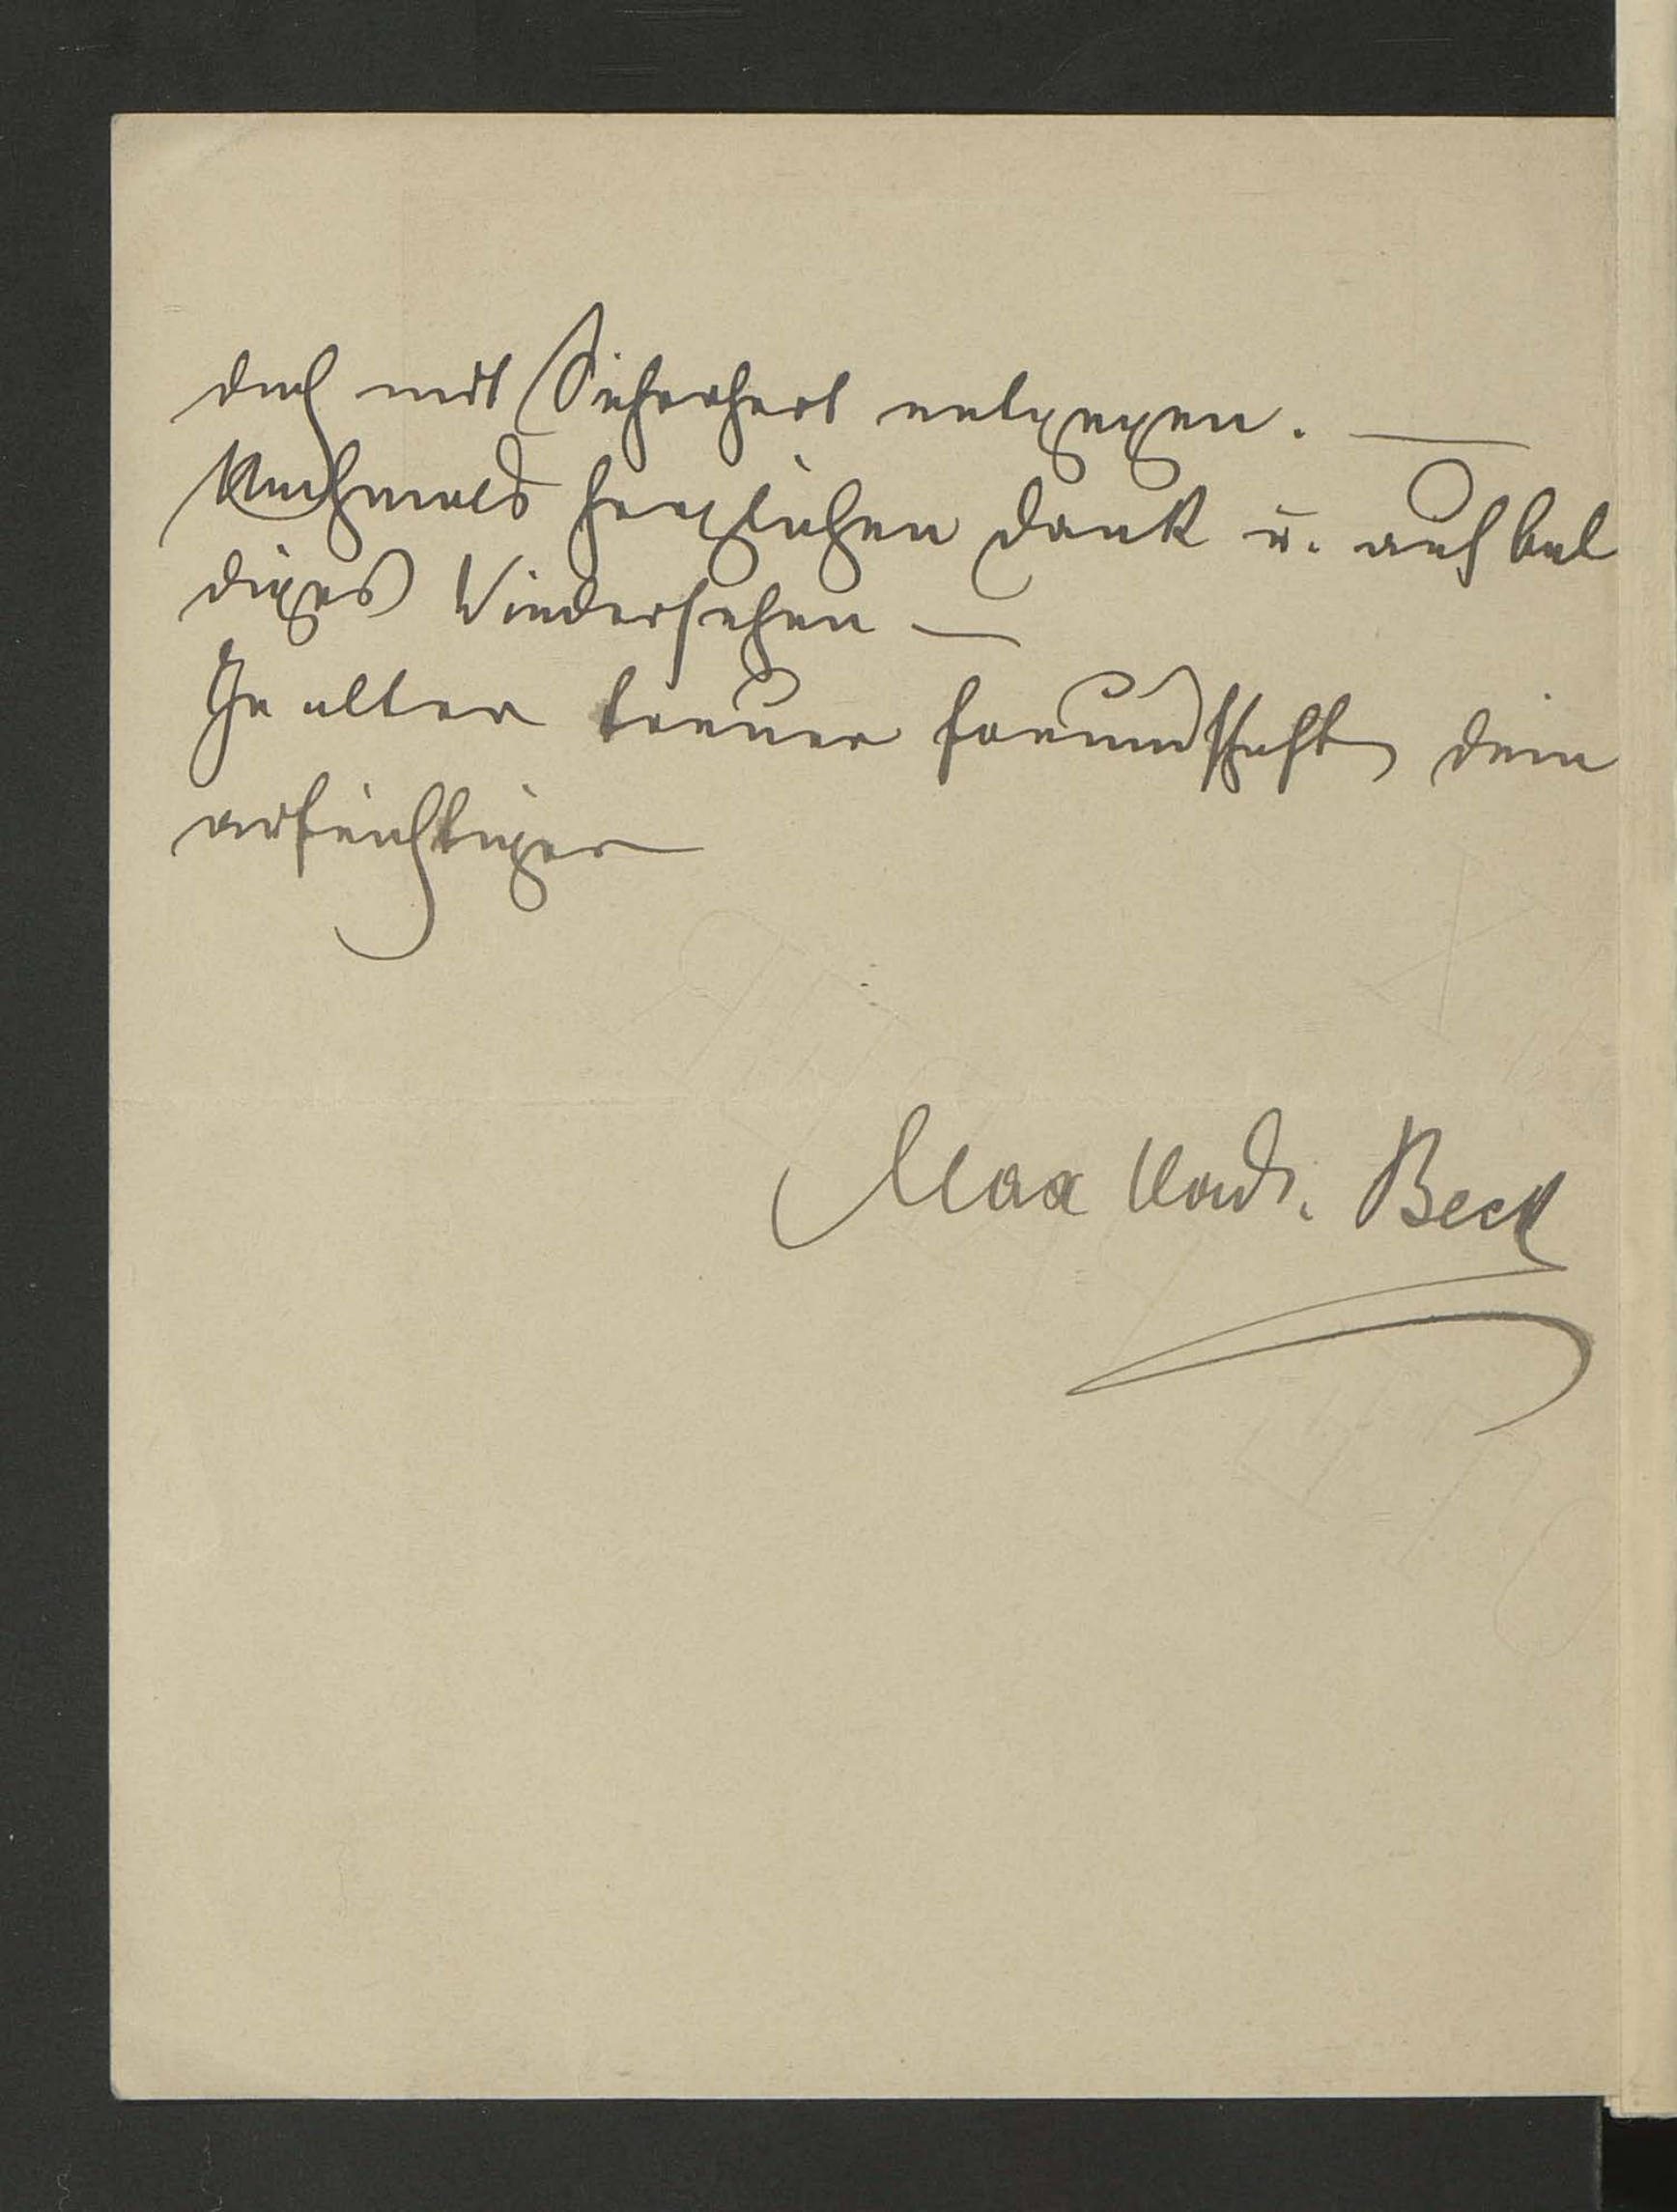 doch mit Sicherheit entgegen. —
Nochmals herzlichen Dank u. auf bal
diges Wiedersehen —
In alter treuer Freundschaft Dein
aufrichtiger
Max Beck